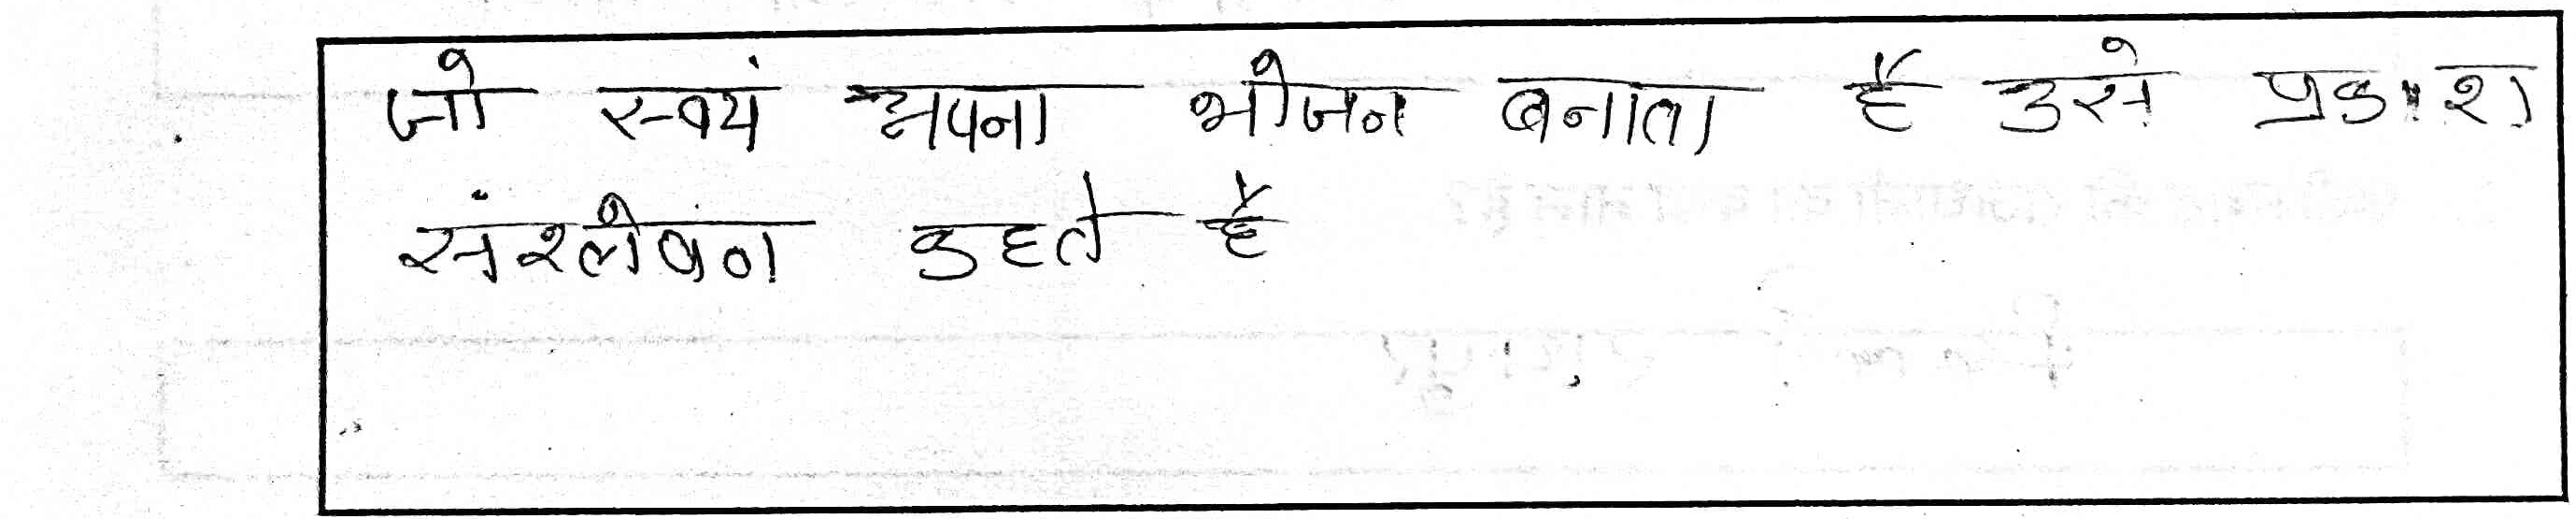 जो स्वयं अपना भोजन बनाता है उसे प्रकाश
संश्लेषण कहते है